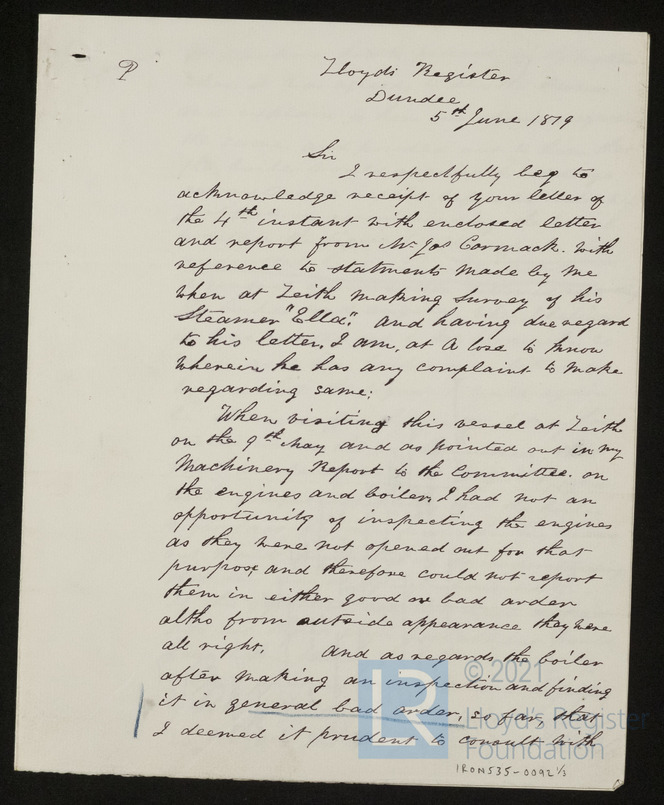 P
Lloyds Register
Dundee
5th June 1879
Sir
I respectfully beg to
acknowledge receipt of your letter of
the 4th instant with enclosed letter
and report from Mr Jas Cormack. with
reference to statments made by me
when at Leith making Survey of his
Steamer "Ella". and having due regard
to his letter, I am, at a lose to know
wherein he has any complaint to make
regarding same;
When visiting this vessel at Leith
on the 9th May and as pointed out in my
Machinery Report to the Committee. on
the engines and boiler, I had not an
opportunity of inspecting the engines
as they were not opened out for that
purpose, and therefore could not report
them in either good or bad order
altho from outside appearance they were
all right. and as regards the boiler
after making an inspection and finding
it in general bad order, so far, that
I deemed it prudent to consult with
© 2021
LR
Lloyd's Register
Foundation
IRON535-0092 1/3